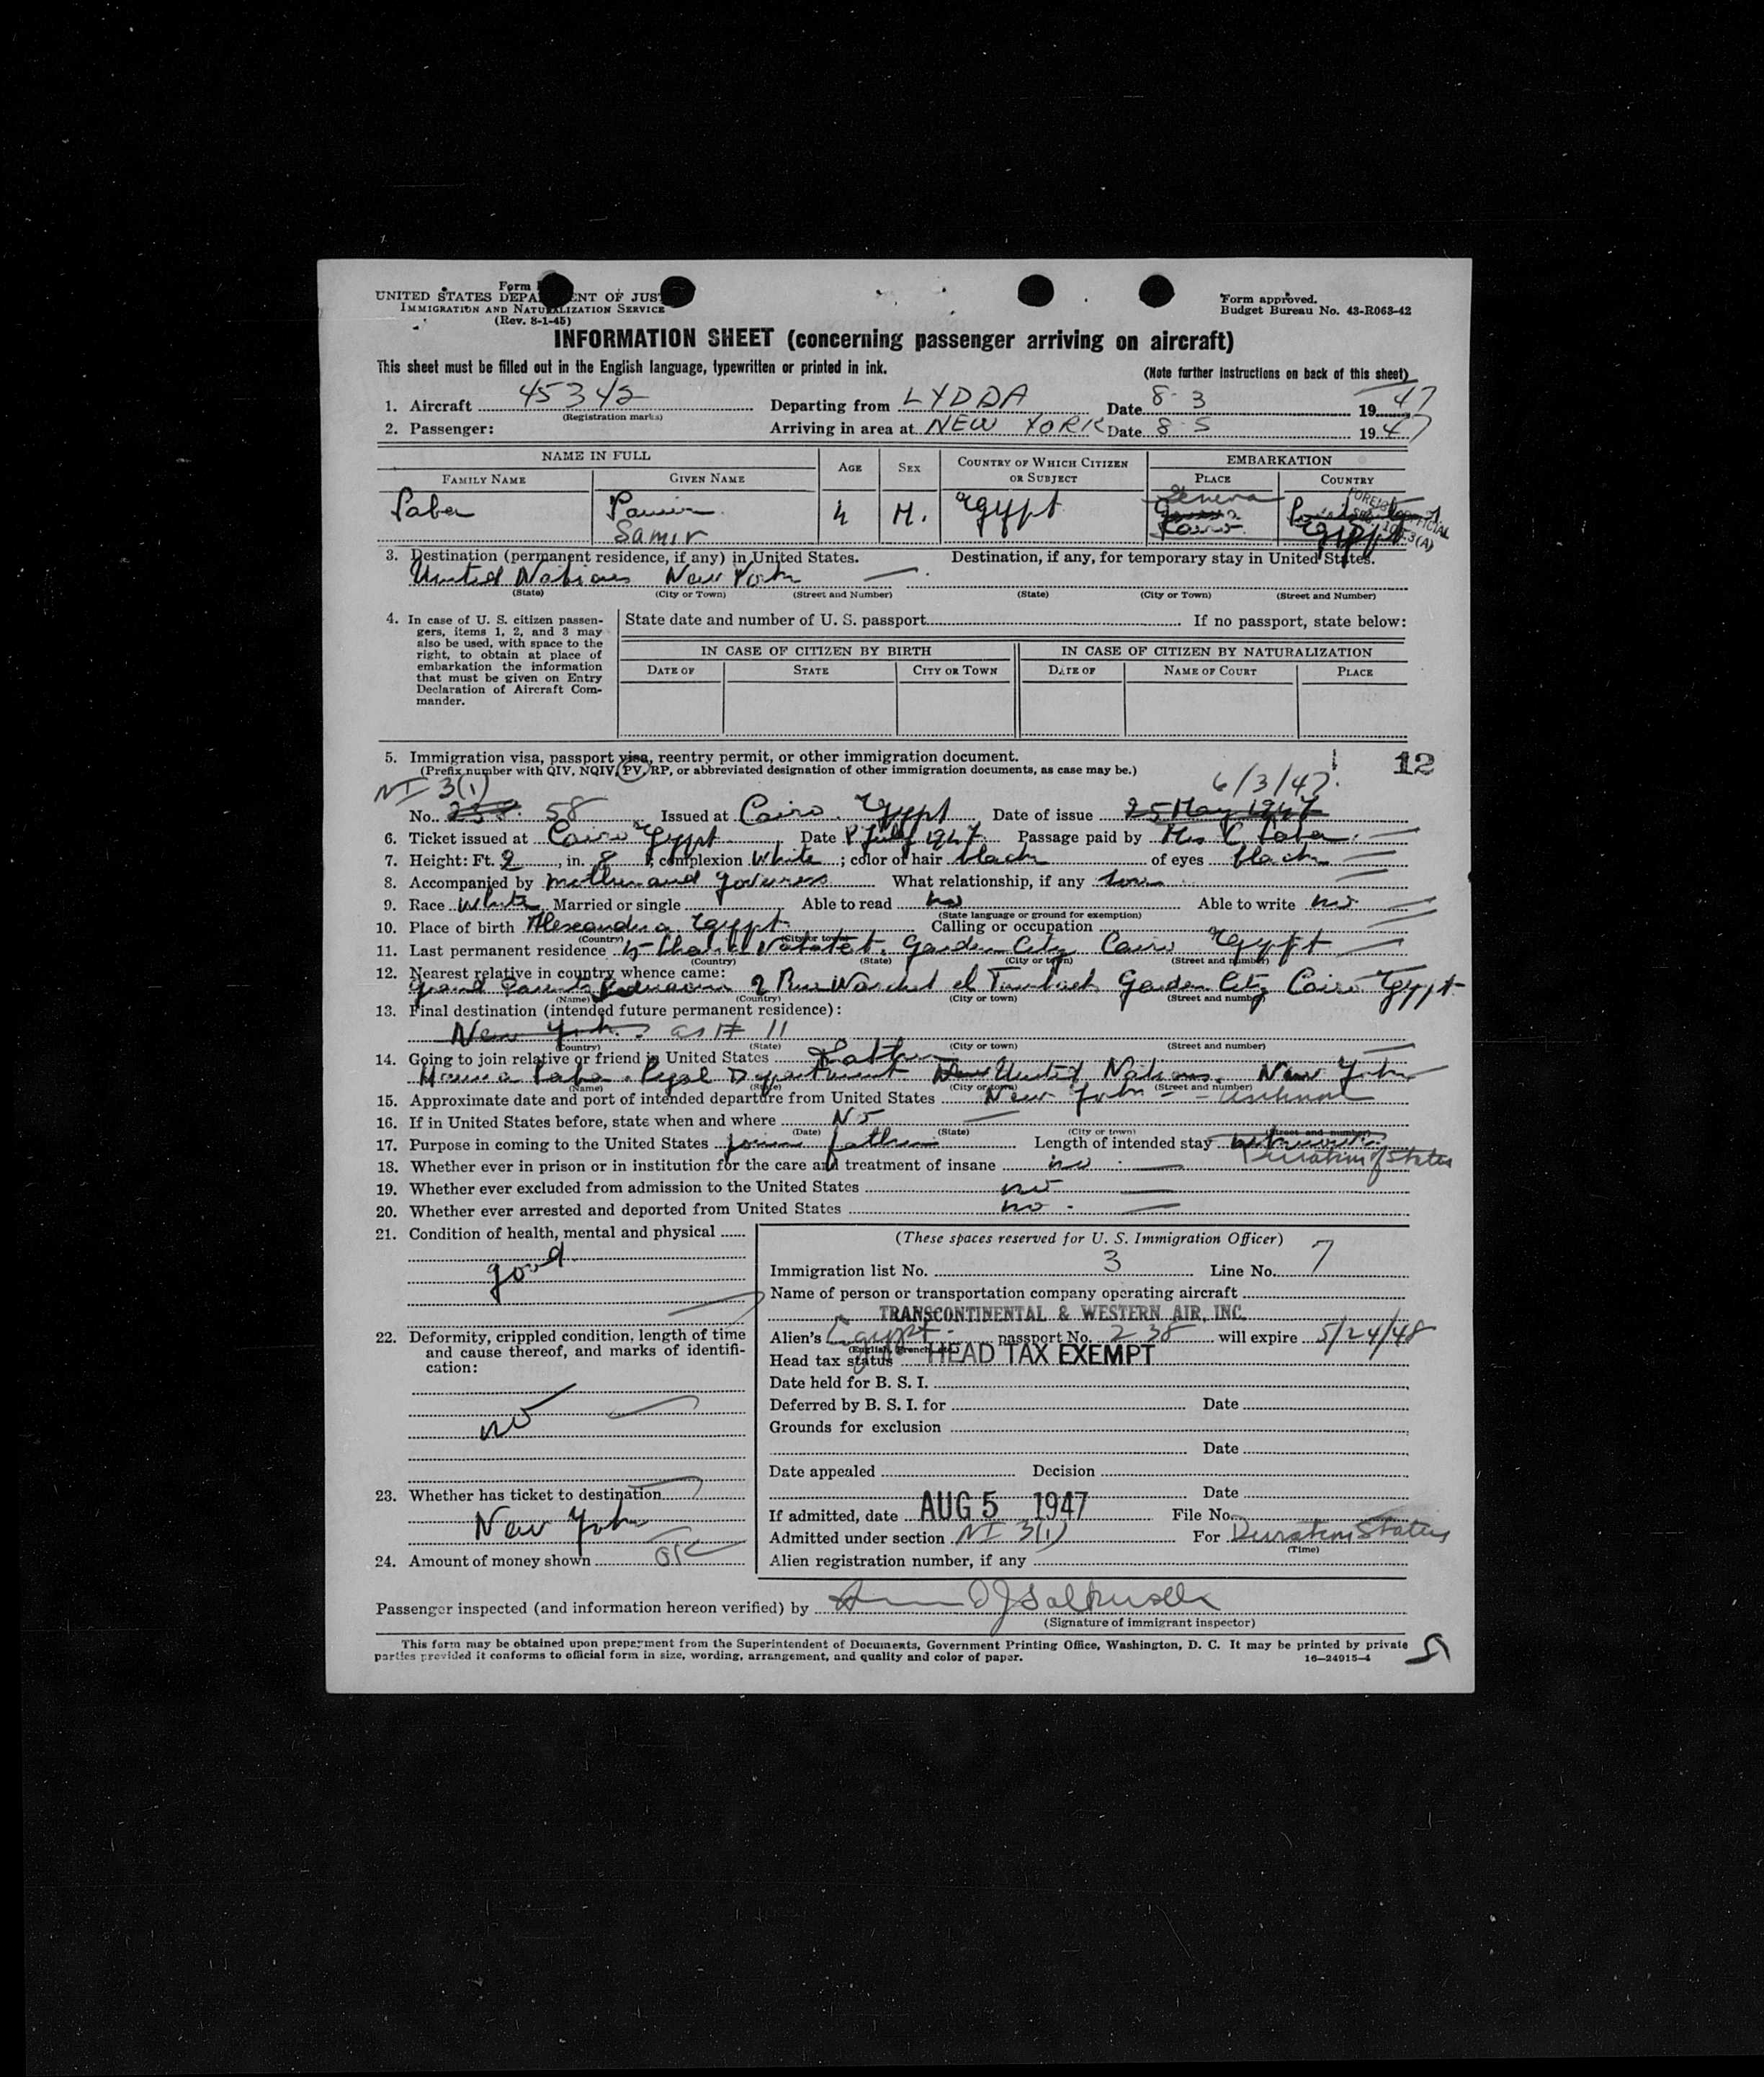 Form
UNITED STATES DEPA ENT OF JUS
IMMIGRATION AND NATURALIZATION SERVICE
(Rev. 8-1-45)
Form approved.
Budget Bureau No. 43-R063-42
INFORMATION SHEET (concerning passenger arriving on aircraft)
This sheet must be filled out in the English language, typewritten or printed in ink.
(Note further instructions on back of this sheet)
1. Aircraft 45342 Departing from LYDDA Date 8-3 1947
(Registration marks)
2. Passenger: Arriving in area at NEW YORK Date 8-5 1947
NAME IN FULL AGE SEX COUNTRY OF WHICH CITIZEN OR SUBJECT EMBARKATION
FAMILY NAME GIVEN NAME PLACE COUNTRY
Saba Samir 4 M. Egypt Geneva
Samir Cairo Egypt
3. Destination (permanent residence, if any) in United States. Destination, if any, for temporary stay in United States.
United Nations New York
(State) (City or Town) (Street and Number) (State) (City or Town) (Street and Number)
4. In case of U. S. citizen passengers, items 1, 2, and 3 may also be used, with space to the right, to obtain at place of embarkation the information that must be given on Entry Declaration of Aircraft Commander.
State date and number of U. S. passport If no passport, state below:
IN CASE OF CITIZEN BY BIRTH IN CASE OF CITIZEN BY NATURALIZATION
DATE OF STATE CITY OR TOWN DATE OF NAME OF COURT PLACE
5. Immigration visa, passport visa, reentry permit, or other immigration document. 12
(Prefix number with QIV, NQIV, PV, RP, or abbreviated designation of other immigration documents, as case may be.)
NI 3(1) 6/3/47.
No. 238. 58 Issued at Cairo. Egypt Date of issue 25 May 1947
6. Ticket issued at Cairo Egypt Date 8 July 1947 Passage paid by Mrs C. Saba.
7. Height: Ft. 2, in. 8; complexion White; color of hair black of eyes black
8. Accompanied by mother and governess What relationship, if any son
9. Race White Married or single Able to read no Able to write no
(State language or ground for exemption)
10. Place of birth Alexandria Egypt Calling or occupation
(Country) (City or town)
11. Last permanent residence Garden City Cairo Egypt
(Country) (State) (City or town) (Street and number)
12. Nearest relative in country whence came:
Grand Parents 2 Rue El Garden City Cairo Egypt
(Name) (Country) (City or town) (Street and number)
13. Final destination (intended future permanent residence):
New York as # 11
(Country) (State) (City or town) (Street and number)
14. Going to join relative or friend in United States Father
Hanna Saba. Legal Department United Nations. New York
(Name) (State) (City or town) (Street and number)
15. Approximate date and port of intended departure from United States New York - unknown
16. If in United States before, state when and where No
(Date) (State) (City or town) (Street and number)
17. Purpose in coming to the United States join father Length of intended stay unknown
Duration of Status
18. Whether ever in prison or in institution for the care and treatment of insane no
19. Whether ever excluded from admission to the United States no
20. Whether ever arrested and deported from United States no
21. Condition of health, mental and physical
good
22. Deformity, crippled condition, length of time and cause thereof, and marks of identification:
no
23. Whether has ticket to destination
New York
24. Amount of money shown OK
(These spaces reserved for U. S. Immigration Officer)
Immigration list No. 3 Line No. 7
Name of person or transportation company operating aircraft
TRANSCONTINENTAL & WESTERN AIR, INC.
Alien's Egypt passport No. 238 will expire 5/24/48
(English, French, etc.)
Head tax status HEAD TAX EXEMPT
Date held for B. S. I.
Deferred by B. S. I. for Date
Grounds for exclusion
Date
Date appealed Decision
Date
If admitted, date AUG 5 1947 File No.
Admitted under section NI 3(1) For Duration Status
(Time)
Alien registration number, if any
Passenger inspected (and information hereon verified) by
(Signature of immigrant inspector)
This form may be obtained upon prepayment from the Superintendent of Documents, Government Printing Office, Washington, D. C. It may be printed by private
parties provided it conforms to official form in size, wording, arrangement, and quality and color of paper. 16—24915-4